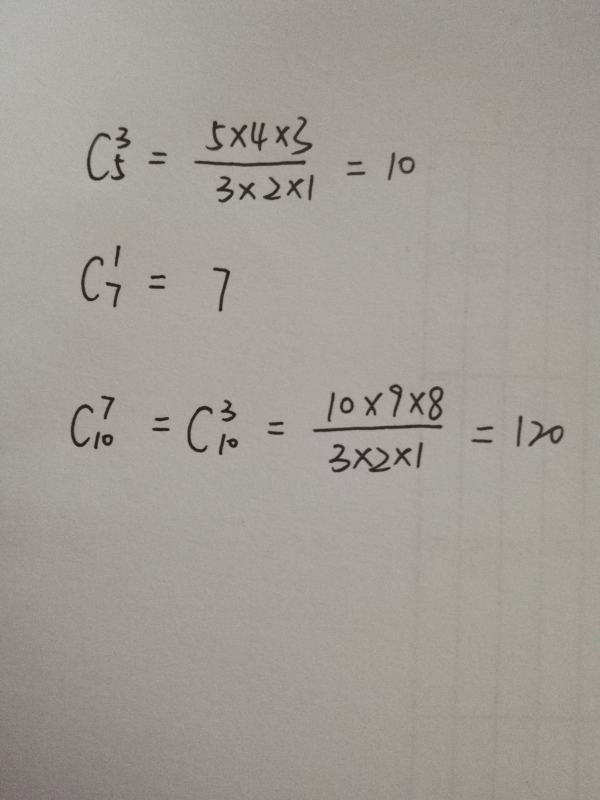 C₅³ = (5×4×3)/(3×2×1) = 10
C₇¹ = 7
C₁₀⁷ = C₁₀³ = (10×9×8)/(3×2×1) = 120